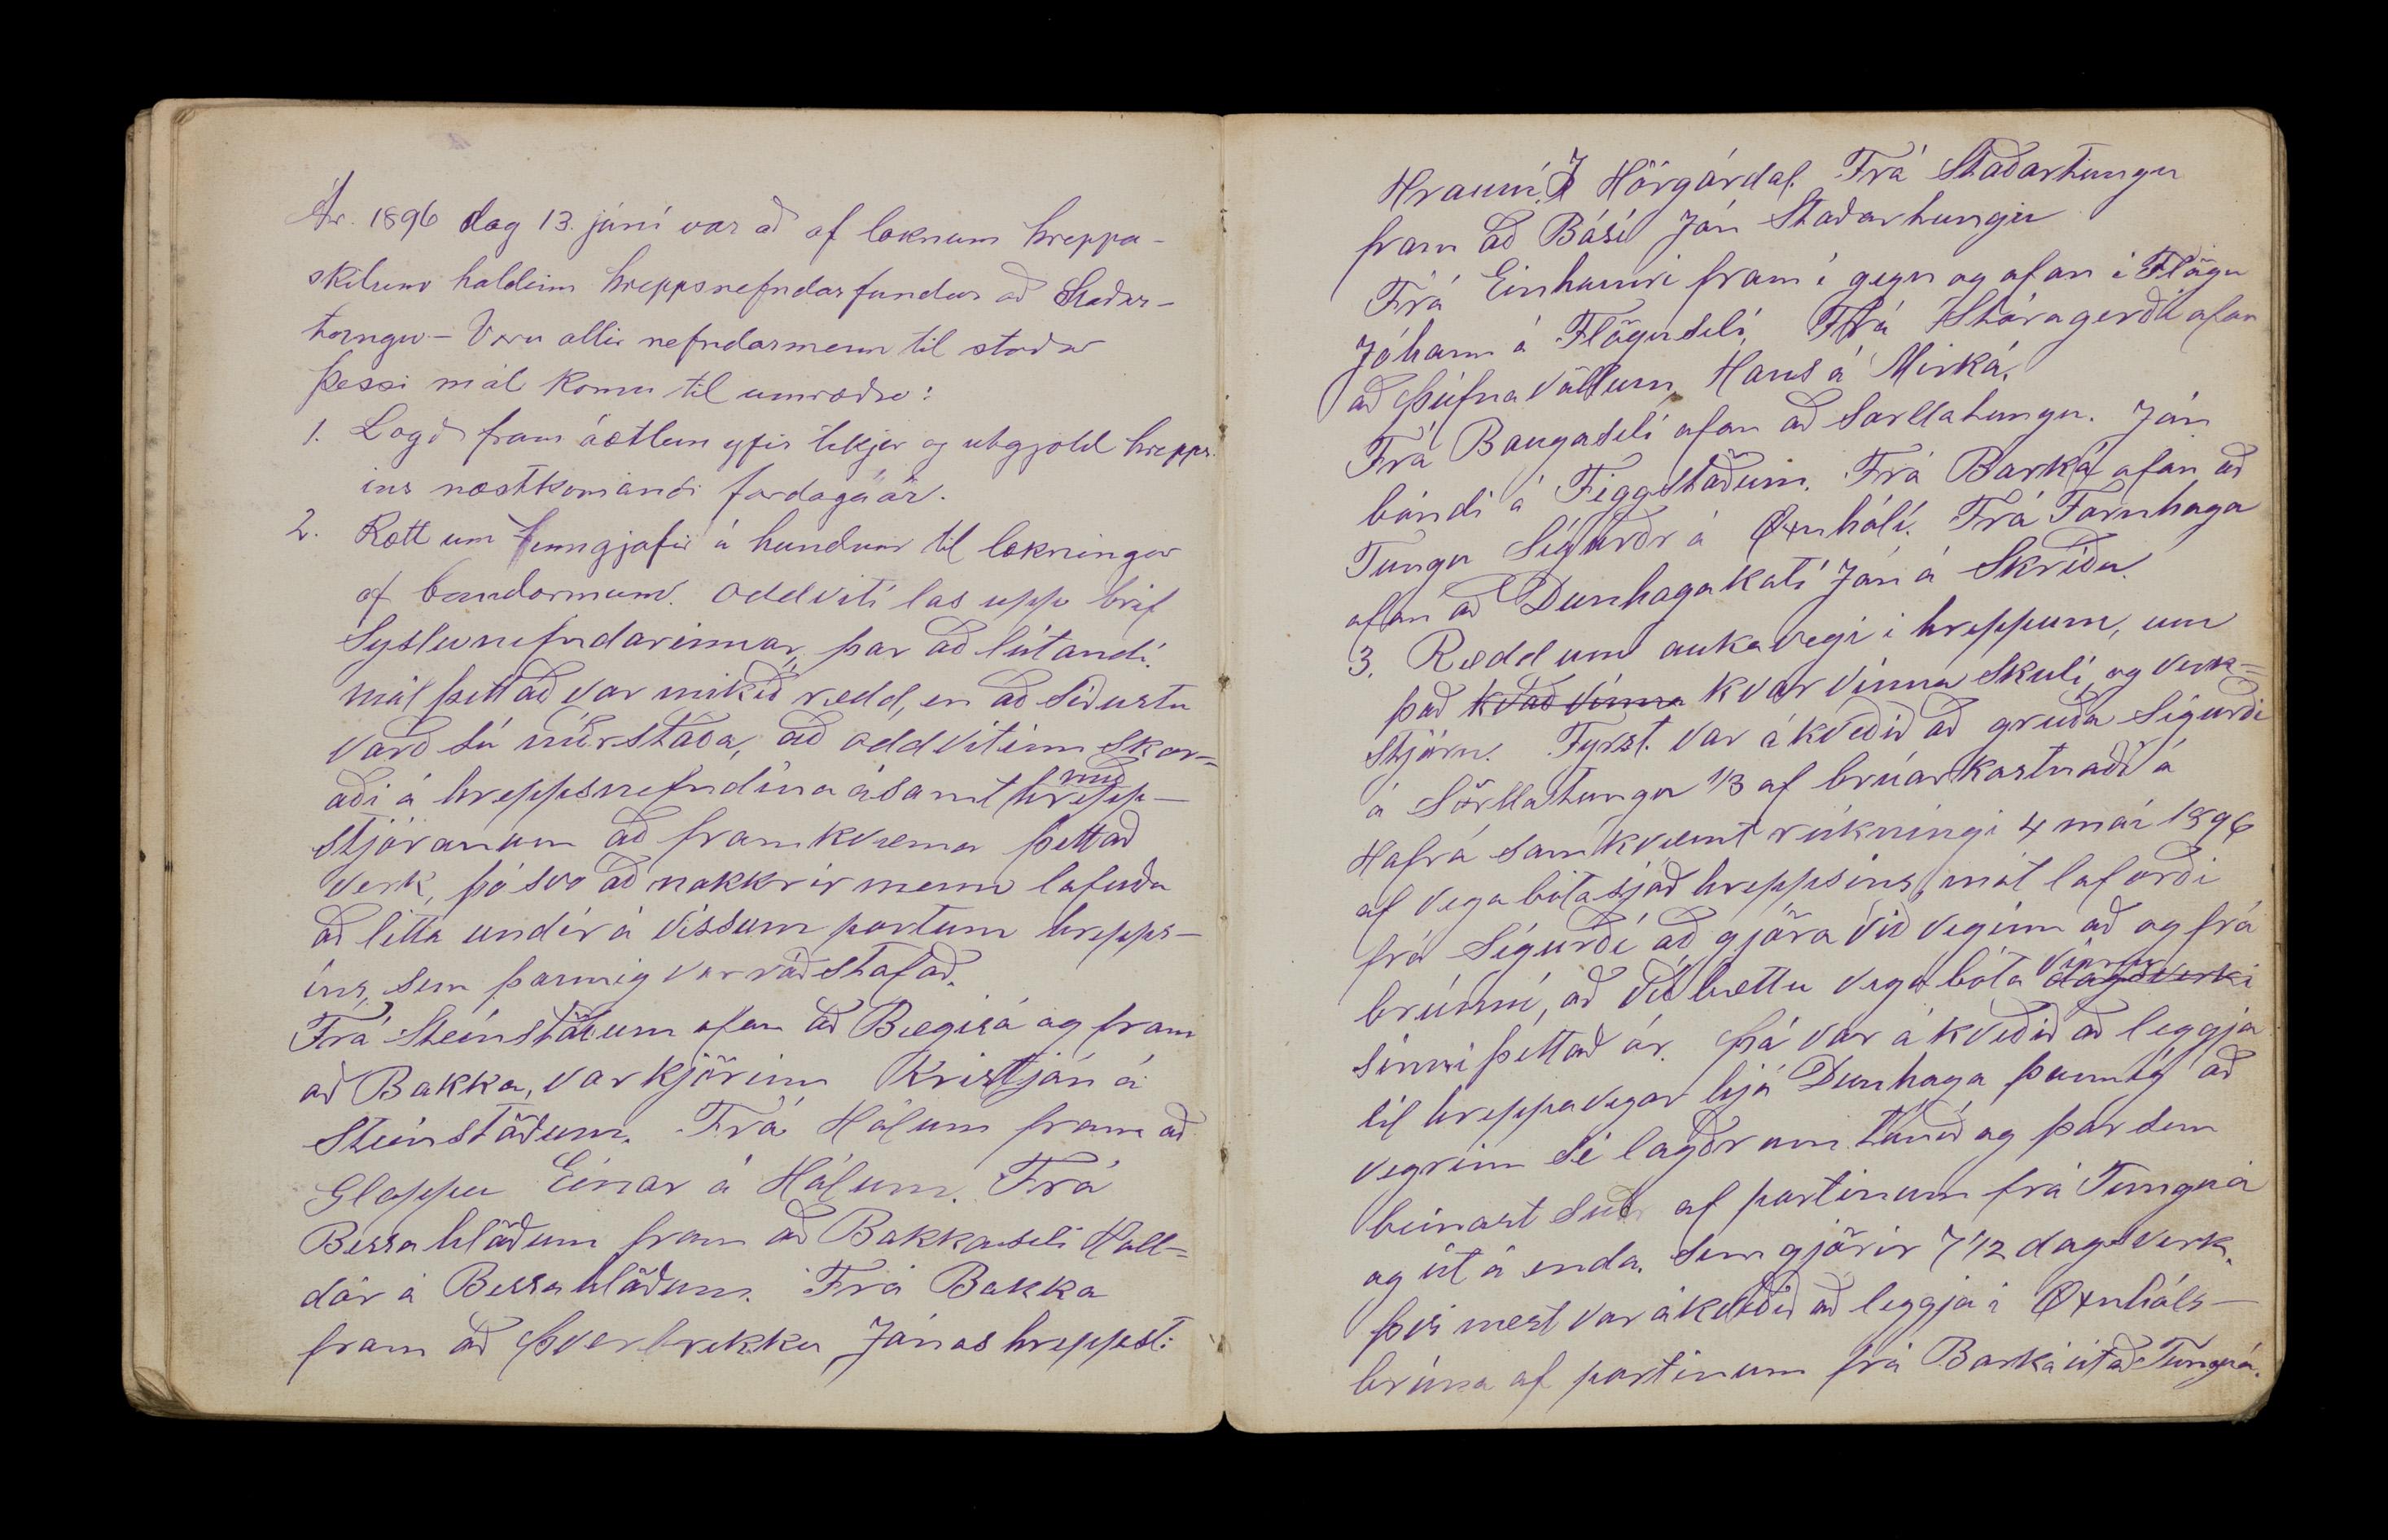 Ár. 1896 dag 13. júní var að af loknum hreppa-
skilum haldinn hreppsnefndarfundur að Staðar-
tungu - Voru allir nefndarmenn til staðar
þessi mál komu til umræðu:
1. Logð fram áætlun yfir tekjur og utgjold hrepps-
ins næstkomandi fardagaár.
2. Rætt um inngjafir á hundum til lækningar
af bandormum. Oddviti las upp bréf
Syslunefndarinnar þar að lútandi.
mál þettað var mikið rædd, en að síðustu
varð sú niðrstaða, að oddvitinn skor-
aði á hreppsnefndina ásamt með hrepp-
stjóranum að framkvæma þettað
verk, þó svo að nokkrir menn lofuðu
að litta undir á vissum portum hrepps-
ins, sem þannig var ráðstafað.
Frá Steinstöðum ofan að Bægisá og fram
að Bakka, var kjörinn Kristján á
Steinstöðum. Frá Hólum fram að
Gloppu Einar á Hólum. Frá
Bessahlöðum fram að Bakkaseli Hall-
dór á Bessahlöðum. Frá Bakka
fram að Þverbrekku Jónas hreppst:
Hrauni. I Hörgárdal. Frá Staðartungu
fram að Bási Jón Staðartungu
Frá Einhamri fram í gegn og ofan í Flögu
Jóhann á Flöguseli, Frá Stóragerði ofan
að Þúfnavöllum, Hans á Mirká.
Frá Baugaseli ofan að Sorllatungu. Jón
bóndi á Figgstöðum. Frá Barká ofan að
Tungu Sigurðr á Øxnhóli. Frá Fornhaga
ofan að Dunhagakoti Jón á Skriðu.
3. Rædd um aukavegi i hreppum, um
það hvað vinna hvar vinna skuli, og verk-
stjórn. Fyrst. var ákveðið að greiða Sigurði
á Sörllatungu 1/3 af brúarkostnaði á
Hafrá samkvæmt reikningi 4 mái 1896
af vegabótasjóð hreppsins, mót loforði
frá Sigurði að gjöra við veginn að og frá
brúnni, að viðbættu vegabóta dagsverki vinnu
sinni þettað ár. Þá var ákveðið að leggja
til hreppavegar hjá Dunhaga þannig að
vegrinn sé lagðr um túnið og þar sem
beinast suðr af partinum frá Tunguá
og út á enda. Sem gjörir 7 1/2 dagsverk.
Þvi næst var ákveðið að leggja i Øxnhóls-
brúna af partinum frá Barká út að Tunguá.